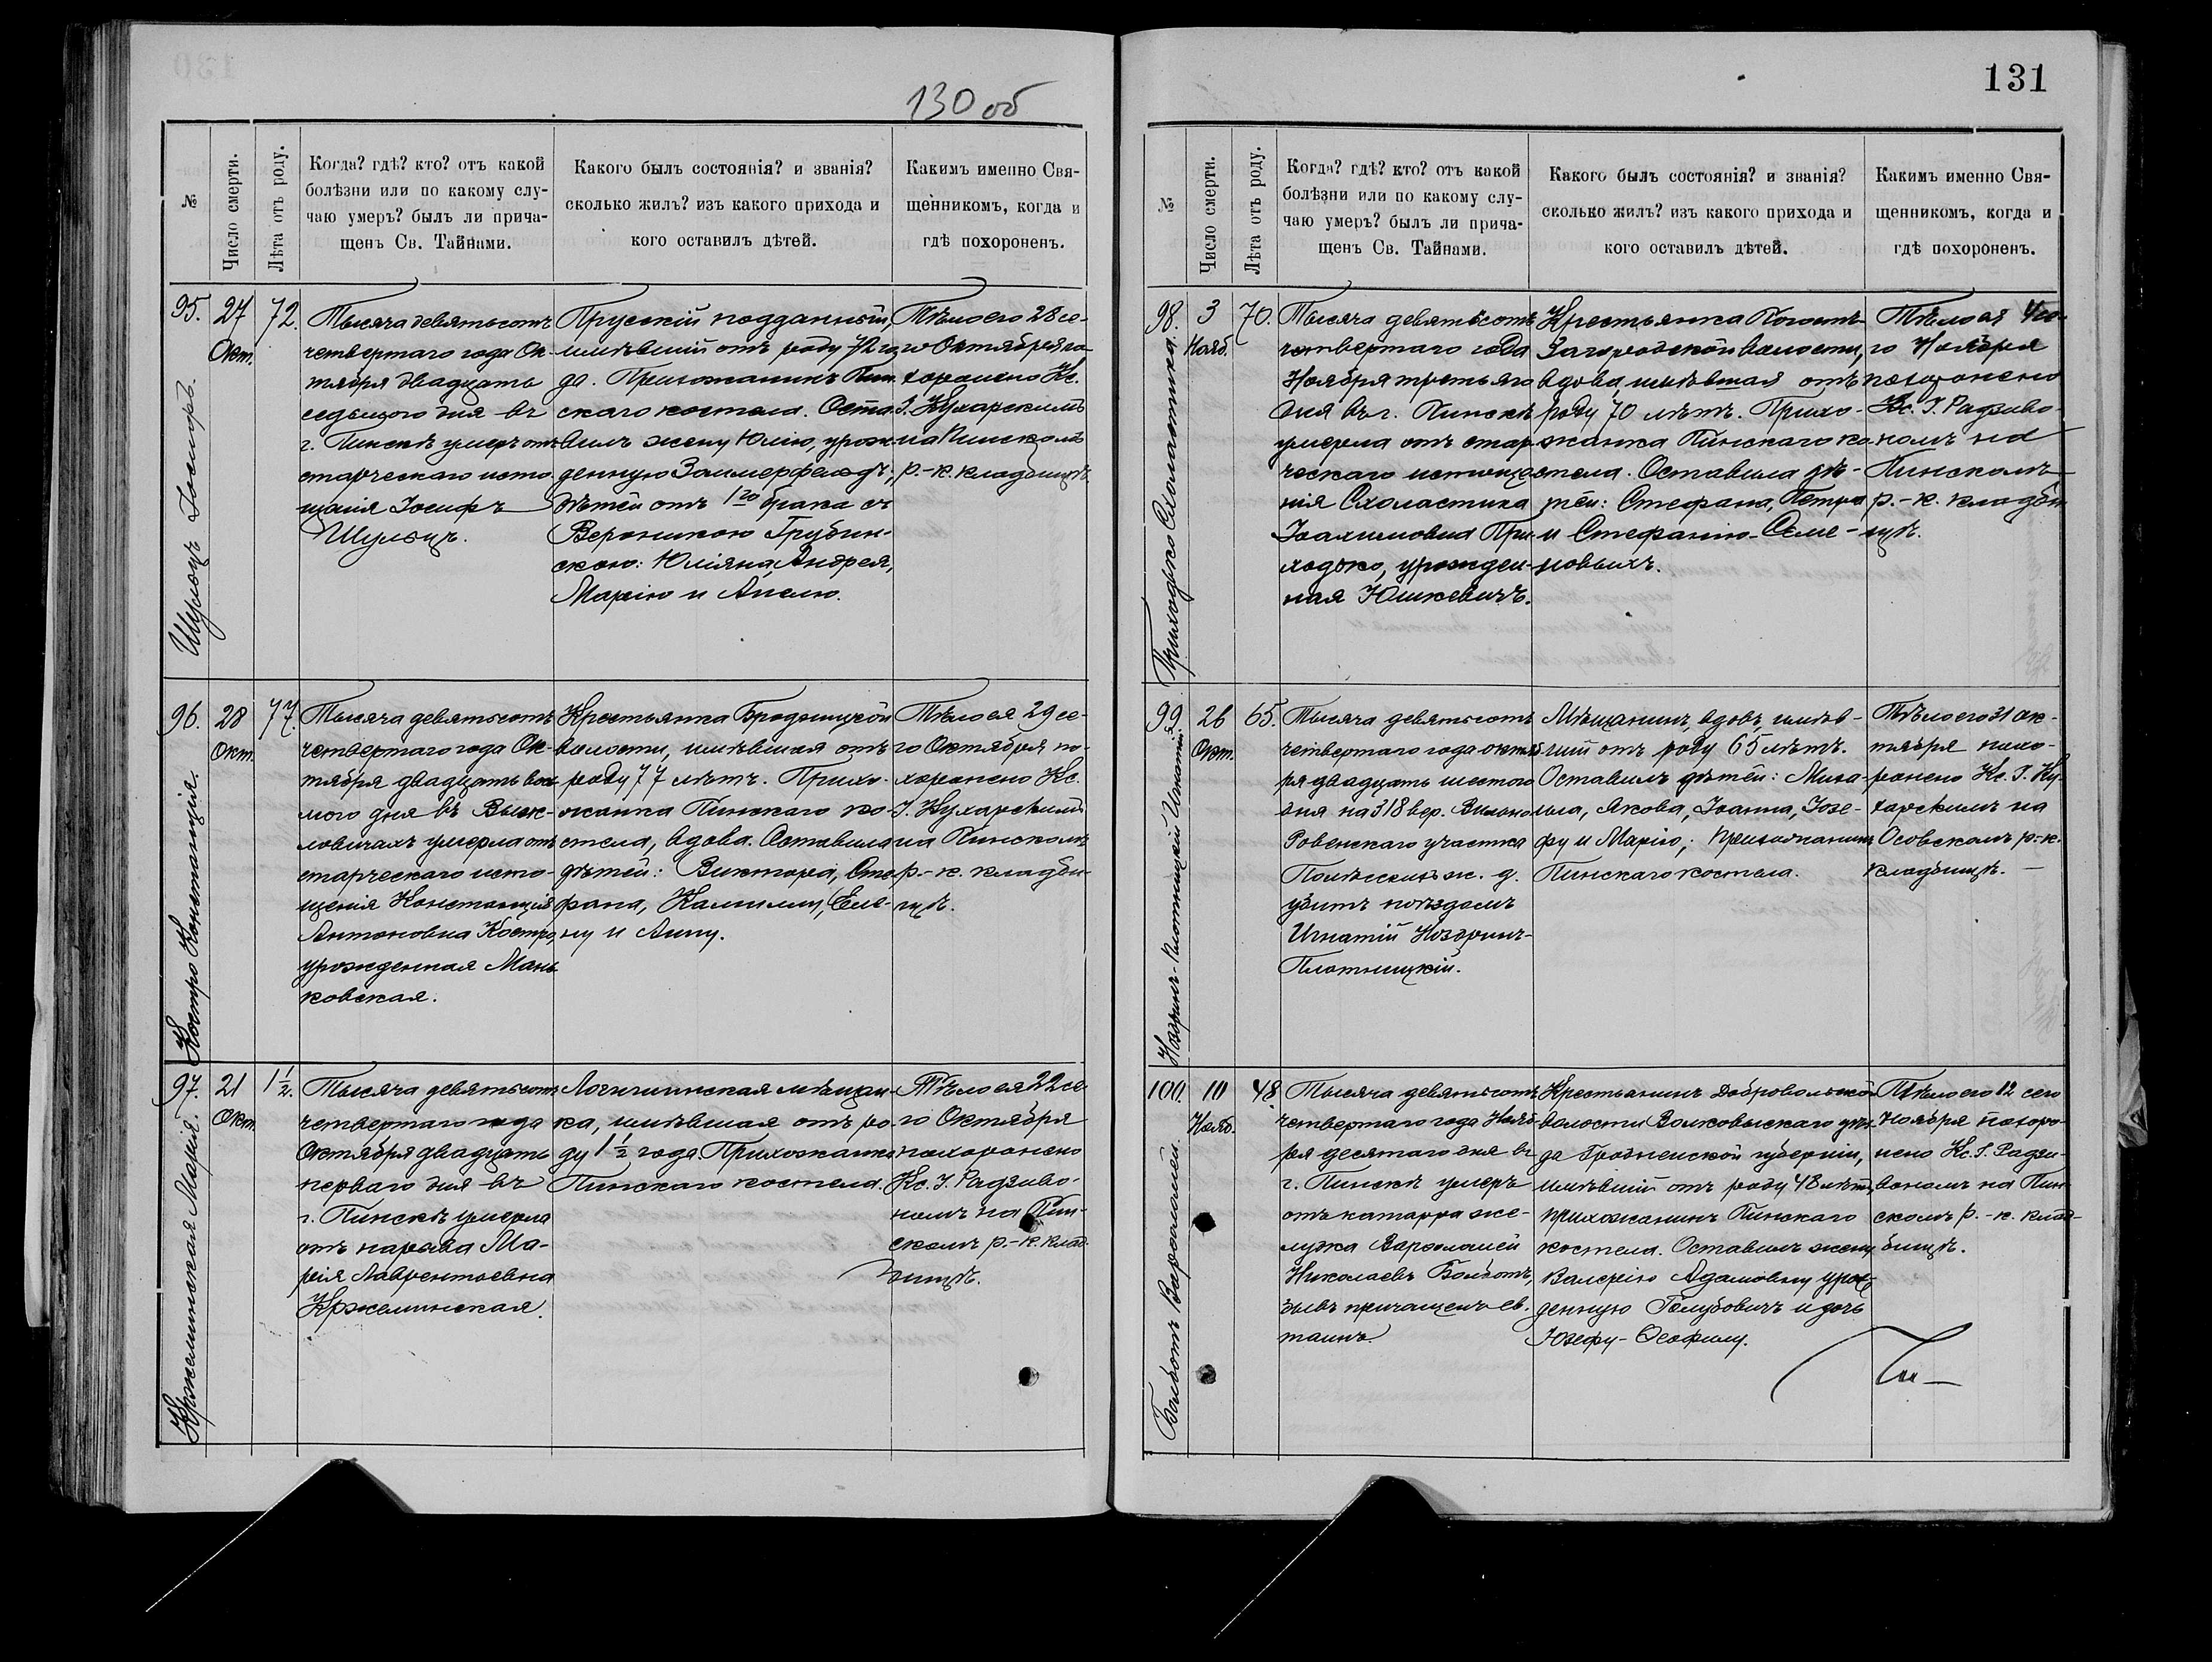 130 об
№
Число смерти.
Лѣта отъ роду.
Когда? гдѣ? кто? отъ какой
болѣзни или по какому слу-
чаю умеръ? былъ ли прича-
щенъ Св. Тайнами.
Какого былъ состоянія? и званія?
сколько жилъ? изъ какого прихода и
кого оставилъ дѣтей.
Какимъ именно Свя-
щенникомъ, когда и
гдѣ похороненъ.
95.
Шульцъ Іосифъ.
27
Окт.
72.
Тысяча девятьсотъ
четвертаго года Ок-
тября двадцать
седьмого дня въ
г. Пинскѣ умеръ отъ
старческаго исто-
щенія Іосифъ
Шульцъ.
Прусскій подданный,
имѣвшій отъ роду 72 го
да. Прихожанинъ Пин-
скаго костела. Оста-
вилъ жену Юлію, урож-
денную Заммерфельдъ;
дѣтей отъ 1го брака съ
Вероникою Грубин-
скою: Юліяна, Андрея,
Марію и Анелю.
Тѣло его 28 се-
го Октября по-
хоронено Кс.
І. Кухарскимъ
на Пинскомъ
р.-к. кладбищѣ.
96.
Костро Констанція.
28
Окт.
77.
Тысяча девятьсотъ
четвертаго года Ок-
тября двадцать вось
мого дня въ Выж-
ловичахъ умерла отъ
старческаго исто-
щенія Констанція
Антоновна Костро,
урожденная Мань
ковская.
Крестьянка Бродницкой
волости, имѣвшая отъ
роду 77 лѣтъ. Прихо-
жанка Пинскаго ко-
стела, вдова. Оставила
дѣтей: Виктора, Сте-
фана, Камилли, Еле-
ну и Анну.
Тѣло ея 29 се-
го Октября по-
хоронено Кс.
І. Кухарскимъ
на Пинскомъ
р.-к. кладби-
щѣ.
97.
Кржелинская Марія.
21
Окт.
1 1/2.
Тысяча девятьсотъ
четвертаго года
Октября двадцать
перваго дня въ
г. Пинскѣ умерла
отъ нарыва Ма-
рія Лаврентьевна
Кржелинская.
Логишинская мѣщан-
ка, имѣвшая отъ ро
ду 1 1/2 года. Прихожанка
Пинскаго костела.
Тѣло ея 22 се-
го Октября
похоронено
Кс. І. Радзиво-
номъ на Пин-
скомъ р.-к. клад-
бищѣ.
131
№
Число смерти.
Лѣта отъ роду.
Когда? гдѣ? кто? отъ какой
болѣзни или по какому слу-
чаю умеръ? былъ ли прича-
щенъ Св. Тайнами.
Какого былъ состоянія? и званія?
сколько жилъ? изъ какого прихода и
кого оставилъ дѣтей.
Какимъ именно Свя-
щенникомъ, когда и
гдѣ похороненъ.
98.
Приходько Схоластика.
3
Нояб.
70.
Тысяча девятьсотъ
четвертаго года
Ноября третьяго
дня въ г. Пинскѣ
умерла отъ стар-
ческаго истоще-
нія Схоластика
Іоахимовна При-
ходько, урожден-
ная Юшкевичъ.
Крестьянка Погост-
Загородской волости,
вдова имѣвшая отъ
роду 70 лѣтъ. Прихо-
жанка Пинскаго ко-
стела. Оставила дѣ-
тей: Стефана, Петра
и Стефанію-Семе-
новыхъ.
Тѣло ея 4 го
го Ноября
похоронено
Кс. І. Радзиво-
номъ на
Пинскомъ
р.-к. кладби
щѣ.
99.
Ноздринъ-Плотницкій Игнатій.
26
Окт.
65.
Тысяча девятьсотъ
четвертаго года октяб-
ря двадцать шестого
дня на 318 вер. Вильно
Ровенскаго участка
Полѣсскихъ ж. д.
убитъ поѣздомъ
Игнатій Ноздринъ-
Плотницкій.
Мѣщанинъ, вдовъ, имѣв-
шій отъ роду 65 лѣтъ.
Оставилъ дѣтей: Миха-
ила, Якова, Іоанна, Іозе-
фу и Марію; прихожанинъ
Пинскаго костела.
Тѣло его 31 ок-
тября похо-
ронено Кс. І. Ку-
харскимъ на
Осовскомъ р.-к.
кладбищѣ.
100.
Балботъ Варфоломей.
10
Нояб.
48.
Тысяча девятьсотъ
четвертаго года Нояб
ря десятаго дня въ
г. Пинскѣ умеръ
отъ катарра же-
лудка Варфоломей
Николаевъ Балботъ,
бывъ причащенъ св.
таинъ.
Крестьянинъ Добровольской
волости Волковыскаго уѣз-
да Гродненской губерніи,
имѣвшій отъ роду 48 лѣтъ,
прихожанинъ Пинскаго
костела. Оставилъ жену
Валерію Адамовну урож-
денную Голубовичъ и дочь
Юзефу-Ѳеофилу.
Тѣло его 12 сего
Ноября похоро-
нено Кс. І. Радзи-
вономъ на Пин-
скомъ р.-к. клад-
бищѣ.